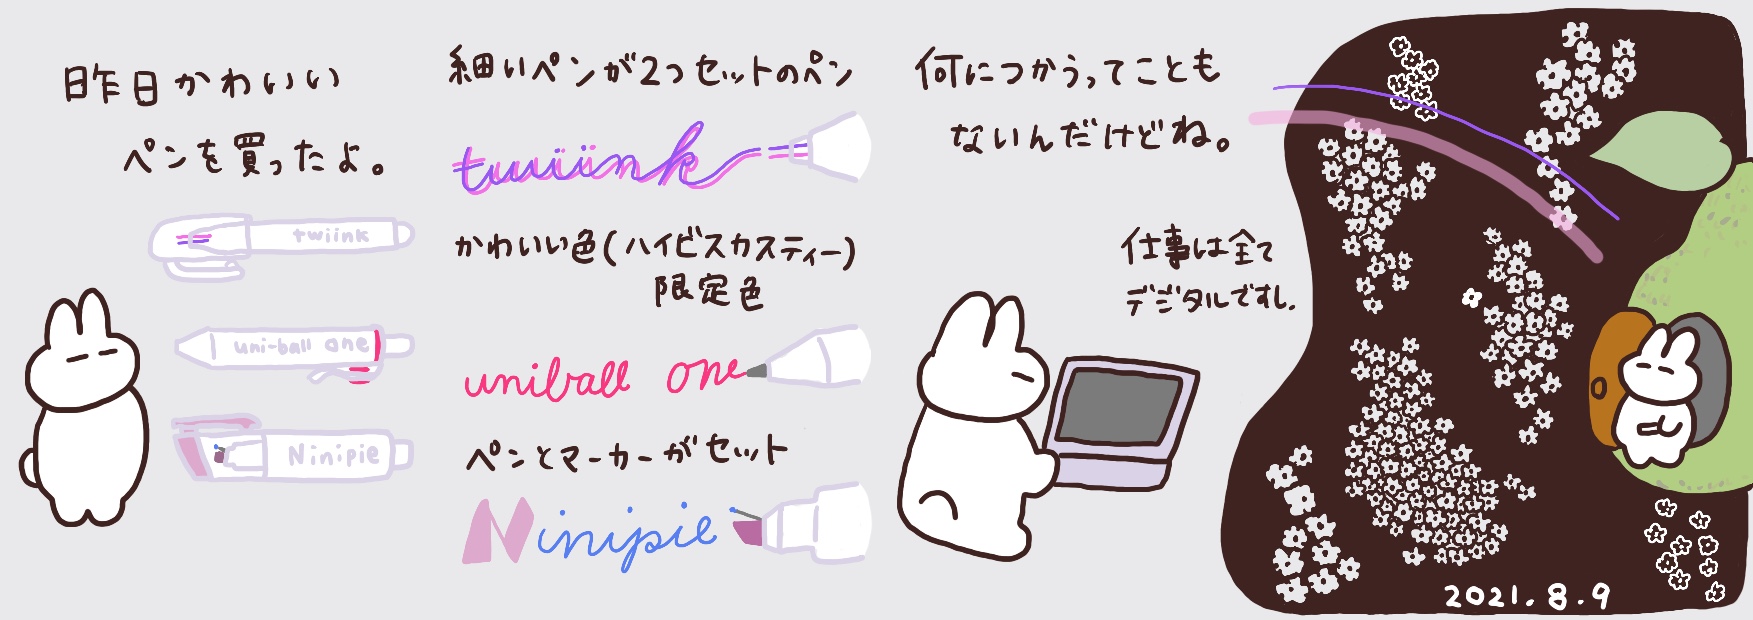 昨日かわいい
ペンを買ったよ。
twiink
uni-ball one
Ninipie
細いペンが2つセットのペン
twiink
かわいい色(ハイビスカスティー)
限定色
uniball one
ペンとマーカーがセット
Ninipie
何につかうってことも
ないんだけどね。
仕事は全て
デジタルですし.
2021.8.9